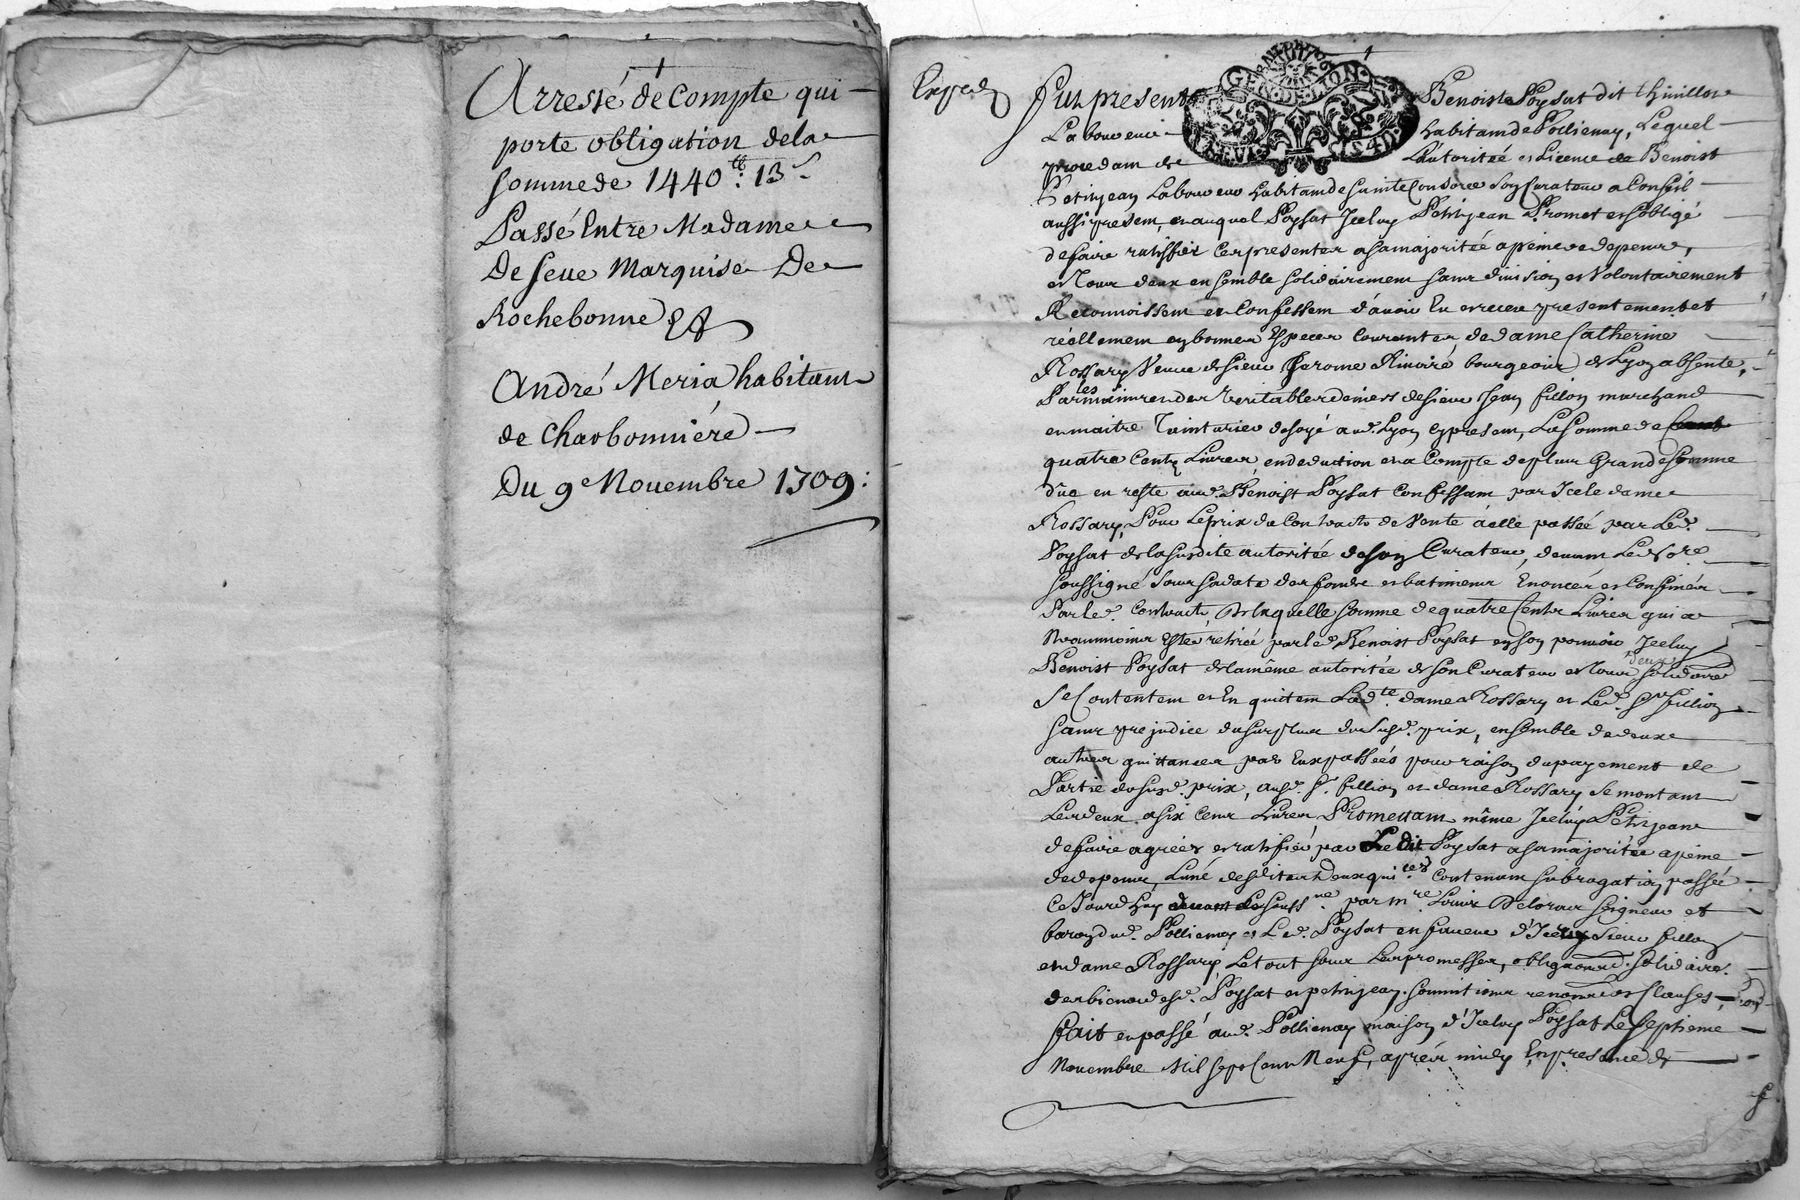 Arresté de Compte qui
porte obligation dela
somme de 1440 ₶: 13 s
Passé Entre Madame
De Seue Marquise De
Rochebonne Et
André Meria habitant
de Charbonniére
Du 9e Nouembre 1709:
Exped
Fut present Benoist Poysat dit Thiuillon
Laboureur habitant de Pollienay, Lequel
procedant de Lautorité et Licence de Benoist
Petitjean Laboureur habitant de Sainte Consorce son Curateur a Conseil
aussi present, et auquel Poysat Iceluy Petitjean Promet et soblige
de faire ratiffier Ces presentes a sa majorité a peine de depens,
et Tous deux ensemble solidairement sans diuision et Volontairement
Reconnoissent et Confessent d'auoir Eu et receu presentement et
réellement en bonnes Especes Courantes de dame Catherine
Rossary Veuue de sieur Jerome Riuoiré bourgeois de Lyon absente,
Par les mains et des Veritables deniers de sieur Jean fillion marchand
et maitre Teinturier de soye aud. Lyon et present, La somme de
quatre Cents Liures, en deduction et a Compte de plus Grande somme
dûe en reste aud. Benoist Poysat Confessant par Icele dame
Rossary, Pour Le prix du Contract de Vente à elle passée par Led.
Poysat de la susdite autorité de son Curateur, deuant Led. nore
soussigné sous sa date des fonds et batimens Enoncés et Confinés
Par led. Contract, De laquelle somme de quatre Cents Liures qui a
Neantmoins esté retirée par led. Benoist Poysat en son pouuoir Iceluy
Benoist Poysat de la même autorité de son Curateur et Tous deux solidaires
se Contentent et En quittent Ladte. dame Rossary et Led. sr. fillion
sans prejudice du surplus du susd. prix, ensemble de deux
autres quittances par Eux passées pour raison du payement de
Partie du susd. prix, ausd. sr. fillion et dame Rossary se montant
Les deux a six Cents Liures, Promettant même Iceluy Petitjean
de faire agréer et ratifier par Le dit Poysat a sa majorité a peine
de depens, L'une desdites deux quices Contenant subrogation passée
Ce Jourdhuy par mre Louis Deloras seigneur et
baron dud. Pollienay et Led. Poysat en faueur d'Iceluy sieur fillion
et dame Rossary, Le tout sous Les promesses, obligaon solidaire
des biens desd. Poysat et petitjean. soumitions renonces et Clauses,
fait et passé aud. Pollienay maison d'Iceluy Poysat Le septieme
Nouembre Mil sept Cent Neuf, aprés midy En presence de